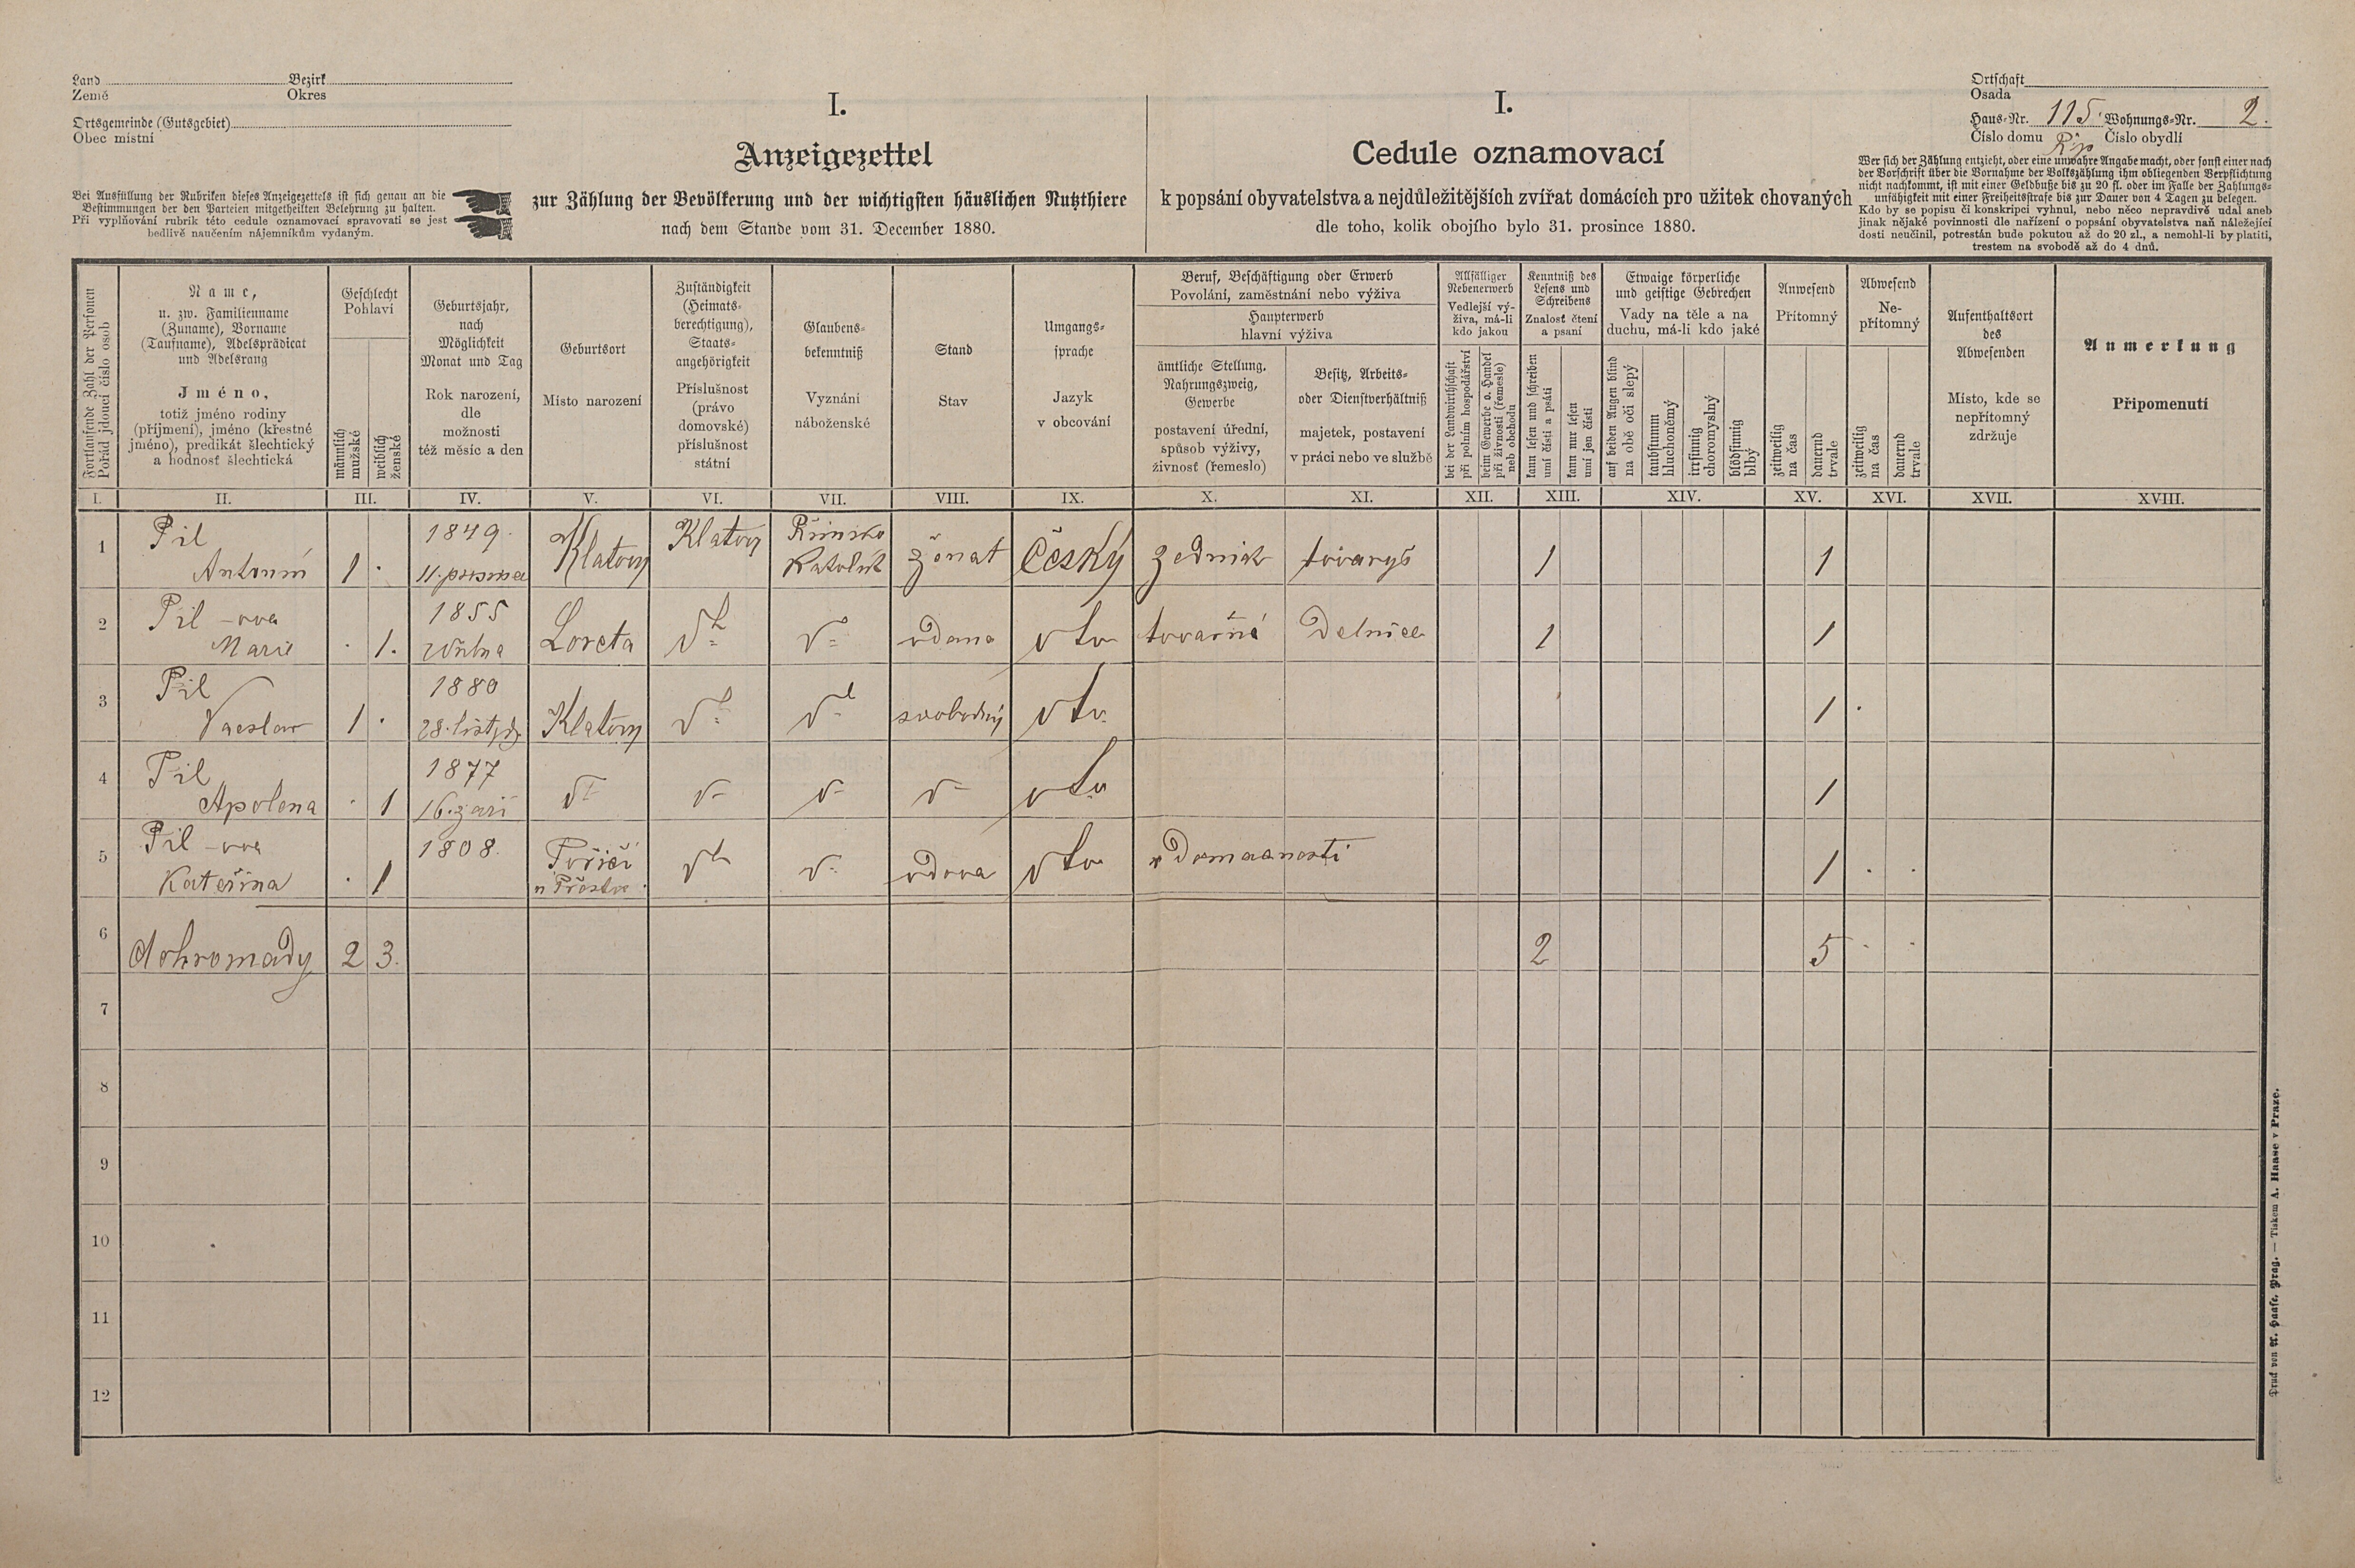 Land Bezirk
Země Okres
Ortsgemeinde (Gutsgebiet)
Obec místní
Bei Ausfüllung der Rubriken dieses Anzeigezettels ist sich genau an die
Bestimmungen der den Parteien mitgetheilten Belehrung zu halten.
Při vyplňování rubrik této cedule oznamovací spravovati se jest
bedlivě naučením nájemníkům vydaným.
I.
Anzeigezettel
zur Zählung der Bevölkerung und der wichtigsten häuslichen Nutzthiere
nach dem Stande vom 31. December 1880.
I.
Cedule oznamovací
k popsání obyvatelstva a nejdůležitějších zvířat domácích pro užitek chovaných
dle toho, kolik obojího bylo 31. prosince 1880.
Ortschaft
Osada
Haus-Nr. 115 Wohnungs-Nr. 2.
Číslo domu Číslo obydlí
Wer sich der Zählung entzieht, oder eine unwahre Angabe macht, oder sonst einer nach
der Vorschrift über die Vornahme der Volkszählung ihm obliegenden Verpflichtung
nicht nachkommt, ist mit einer Geldbuße bis zu 20 fl. oder im Falle der Zahlungs-
unfähigkeit mit einer Freiheitsstrafe bis zur Dauer von 4 Tagen zu belegen.
Kdo by se popisu či konskripci vyhnul, nebo něco nepravdivě udal aneb
jinak nějaké povinnosti dle nařízení o popsání obyvatelstva naň náležející
dosti neučinil, potrestán bude pokutou až do 20 zl., a nemohl-li by platiti,
trestem na svobodě až do 4 dnů.
Fortlaufende Zahl der Personen
Pořád jdoucí číslo osob
Name,
u. zw. Familienname
(Zuname), Vorname
(Taufname), Adelsprädicat
und Adelsrang
Jméno,
totiž jméno rodiny
(příjmení), jméno (křestné
jméno), predikát šlechtický
a hodnosť šlechtická
Geschlecht
Pohlaví
männlich
mužské
weiblich
ženské
Geburtsjahr,
nach
Möglichkeit
Monat und Tag
Rok narození,
dle
možnosti
též měsíc a den
Geburtsort
Místo narození
Zuständigkeit
(Heimats-
berechtigung),
Staats-
angehörigkeit
Příslušnost
(právo
domovské)
příslušnost
státní
Glaubens-
bekenntniß
Vyznání
náboženské
Stand
Stav
Umgangs-
sprache
Jazyk
v obcování
Beruf, Beschäftigung oder Erwerb
Povolání, zaměstnání nebo výživa
Haupterwerb
hlavní výživa
ämtliche Stellung.
Nahrungszweig,
Gewerbe
postavení úřední,
způsob výživy,
živnosť (řemeslo)
Besitz, Arbeits-
oder Dienstverhältniß
majetek, postavení
v práci nebo ve službě
Allfälliger
Nebenerwerb
Vedlejší vý-
živa, má-li
kdo jakou
bei der Landwirthschaft
při polním hospodářství
beim Gewerbe o. Handel
při živnosti (řemesle)
neb obchodu
Kenntniß des
Lesens und
Schreibens
Znalosť čtení
a psaní
kann lesen und schreiben
umí čísti a psáti
kann nur lesen
umí jen čísti
Etwaige körperliche
und geistige Gebrechen
Vady na těle a na
duchu, má-li kdo jaké
auf beiden Augen blind
na obě oči slepý
taubstumm
hluchoněmý
irrsinnig
choromyslný
blödsinnig
blbý
Anwesend
Přítomný
zeitweilig
na čas
dauernd
trvale
Abwesend
Ne-
přítomný
zeitweilig
na čas
dauernd
trvale
Aufenthaltsort
des
Abwesenden
Místo, kde se
nepřítomný
zdržuje
Anmerkung
Připomenutí
I. II. III. IV. V. VI. VII. VIII. IX. X. XI. XII. XIII. XIV. XV. XVI. XVII. XVIII.
1 Pil 1849 Klatovy Klatovy Římsko
Antonín 1 11. prosince Katolík ženat Český zedník tovaryš 1 1
2 Pil -ova 1855
Marie 1. Loreta vdana továrná Delnice 1 1
3 Pil 1880
Vaclav 1 28. listpd Klatovy svobodný 1
4 Pil 1877
Apolena 1 16. září 1
5 Pil -ova 1808. Poříčí v Domacnosti
Kateřina 1 vdova 1
6 dohromady 2 3. 2 5
7
8
9
10
11
12
Druck von A. Haase, Prag. — Tiskem A. Haase v Praze.